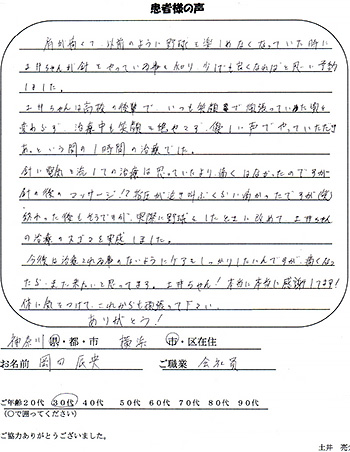 患者様の声
肩が痛くて、以前のように野球を楽しめなくなっていた時に
土井ちゃんが針をやっている事を知り、少しでも良くなればと思い予約
しました。
土井ちゃんは高校の後輩で、いつも笑顔で頑張っていた男
変わらず、治療中も笑顔を絶やさず、優しい声でやっていただき
あっという間の1時間の治療でした。
針に電気を流しての治療は思っていたより痛くはなかったのですが
針の後のマッサージ!?指圧が泣き叫ぶくらい痛かったですが(笑)
終わった後もそうですが、実際に野球をしたときに改めて、土井ちゃん
の治療のスゴさを実感しました。
今後は治療される事のないようにケアをしっかりしたいんですが、痛くなっ
たら、また来たいと思ってます。土井ちゃん!本当に本当に感謝してます!
体に気をつけて、これからも頑張って下さい。
ありがとう!
神奈川 県・都・市 横浜 市・区在住
お名前 岡 辰央 ご職業 会社員
ご年齢20代 30代 40代 50代 60代 70代 80代 90代
(○で囲ってください)
ご協力ありがとうございました。
土井 亮